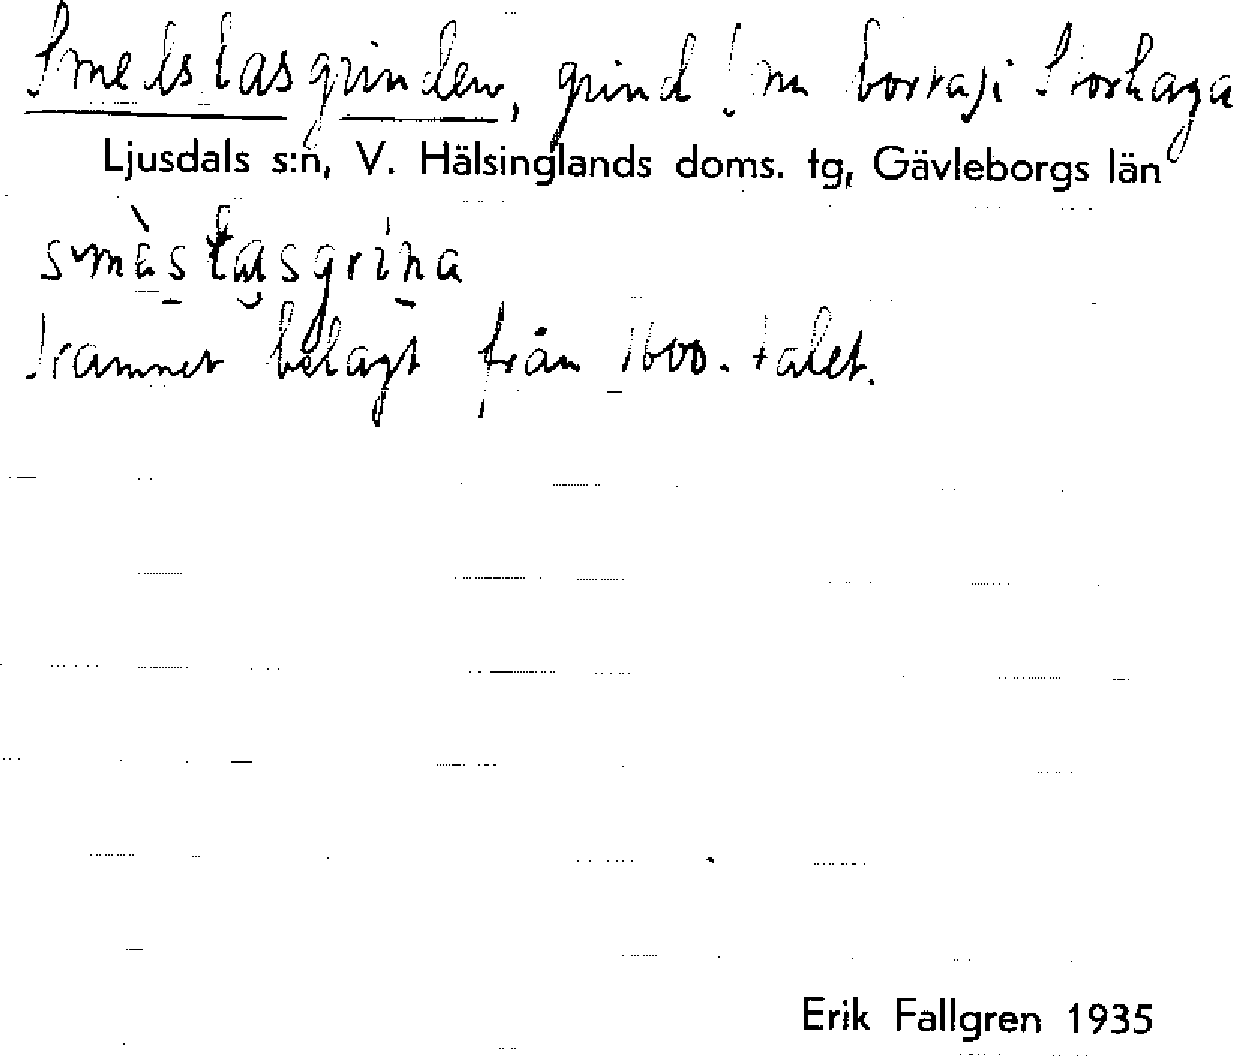 Smedstasgrinden, grind (nu borta) i Storhaga
Ljusdals s:n, V. Hälsinglands doms. tg, Gävleborgs län
smàstasgrina
Namnet belagt från 1600-talet.
Erik Fallgren 1935